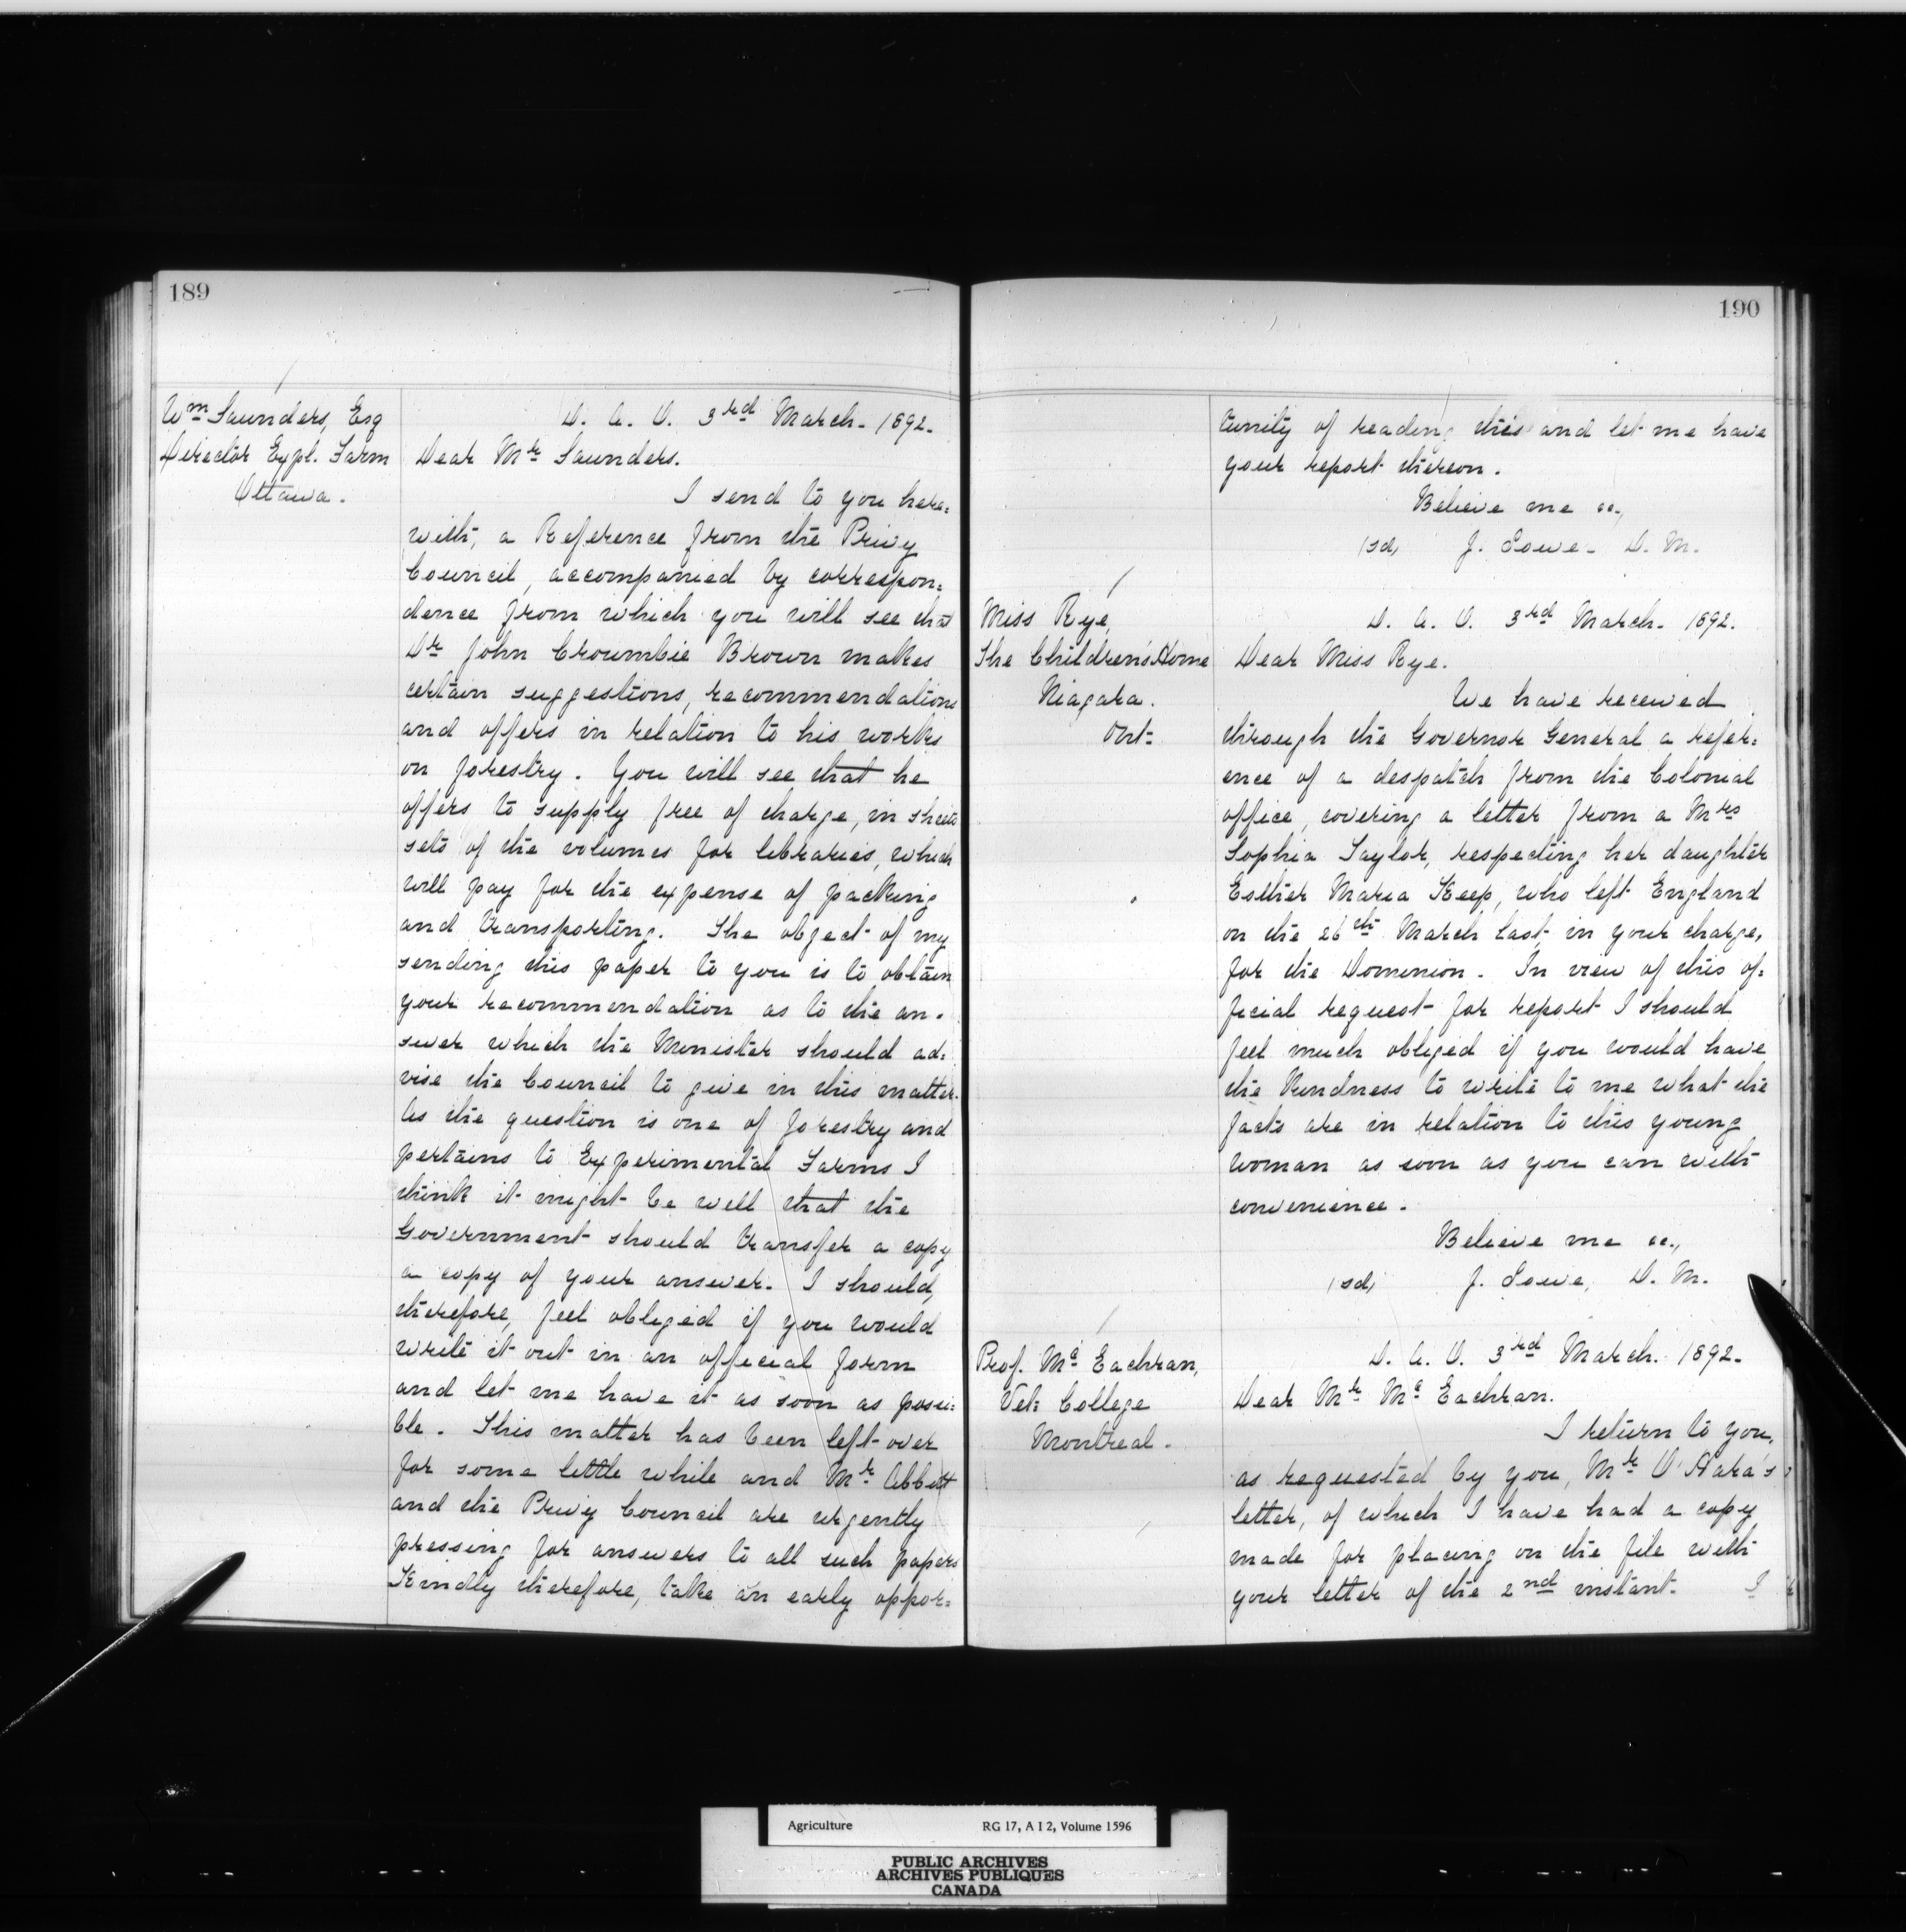 189
Wm Saunders, Esq
Director Expl. Farm
Ottawa.
D. A. O. 3rd March. 1892.
Dear Mr Saunders.
I send to you here=
with, a Reference from the Privy
Council, accompanied by correspon=
dence from which you will see that
Dr John Croumbie Brown makes
certain suggestions, recommendations
and offers in relation to his works
on forestry. You will see that he
offers to supply free of charge, in sheets
sets of the volumes for libraries, which
will pay for the expense of packing
and transporting. The object of my
sending this paper to you is to obtain
your recommendation as to the an=
swer which the Minister should ad=
vise the Council to give in this matter.
As the question is one of forestry and
pertains to Experimental Farms I
think it might be well that the
Government should transfer a copy
a copy of your answer. I should,
therefore, feel obliged if you would
write it out in an official form
and let me have it as soon as possi=
ble. This matter has been left over
for some little while and Mr Abbott
and the Privy Council are urgently
pressing for answers to all such papers
Kindly therefore, take an early oppor=
190
tunity of reading this and let me have
your report thereon.
Believe me &c.,
(sd, J. Lowe. D. M.
Miss Rye,
The Children's Home
Niagara.
Ont=
D. A. O. 3rd March. 1892.
Dear Miss Rye.
We have received
through the Governor General a refer=
ence of a despatch from the Colonial
office, covering a letter from a Mrs
Sophia Taylor, respecting her daughter
Esther Maria Keep, who left England
on the 26th March last, in your charge,
for the Dominion. In view of this of=
ficial request for report I should
feel much obliged if you would have
the kindness to write to me what the
facts are in relation to this young
woman as soon as you can with
convenience.
Believe me &c.,
(sd, J. Lowe, D. M.
Prof. Mc Eachran,
Vet: College
Montreal.
D. A. O. 3rd March. 1892.
Dear Mr Mc Eachran.
I return to you,
as requested by you, Mr O'Hara's
letter, of which I have had a copy
made for placing on the file with
your letter of the 2nd instant. I
Agriculture RG 17, A I 2, Volume 1596
PUBLIC ARCHIVES
ARCHIVES PUBLIQUES
CANADA